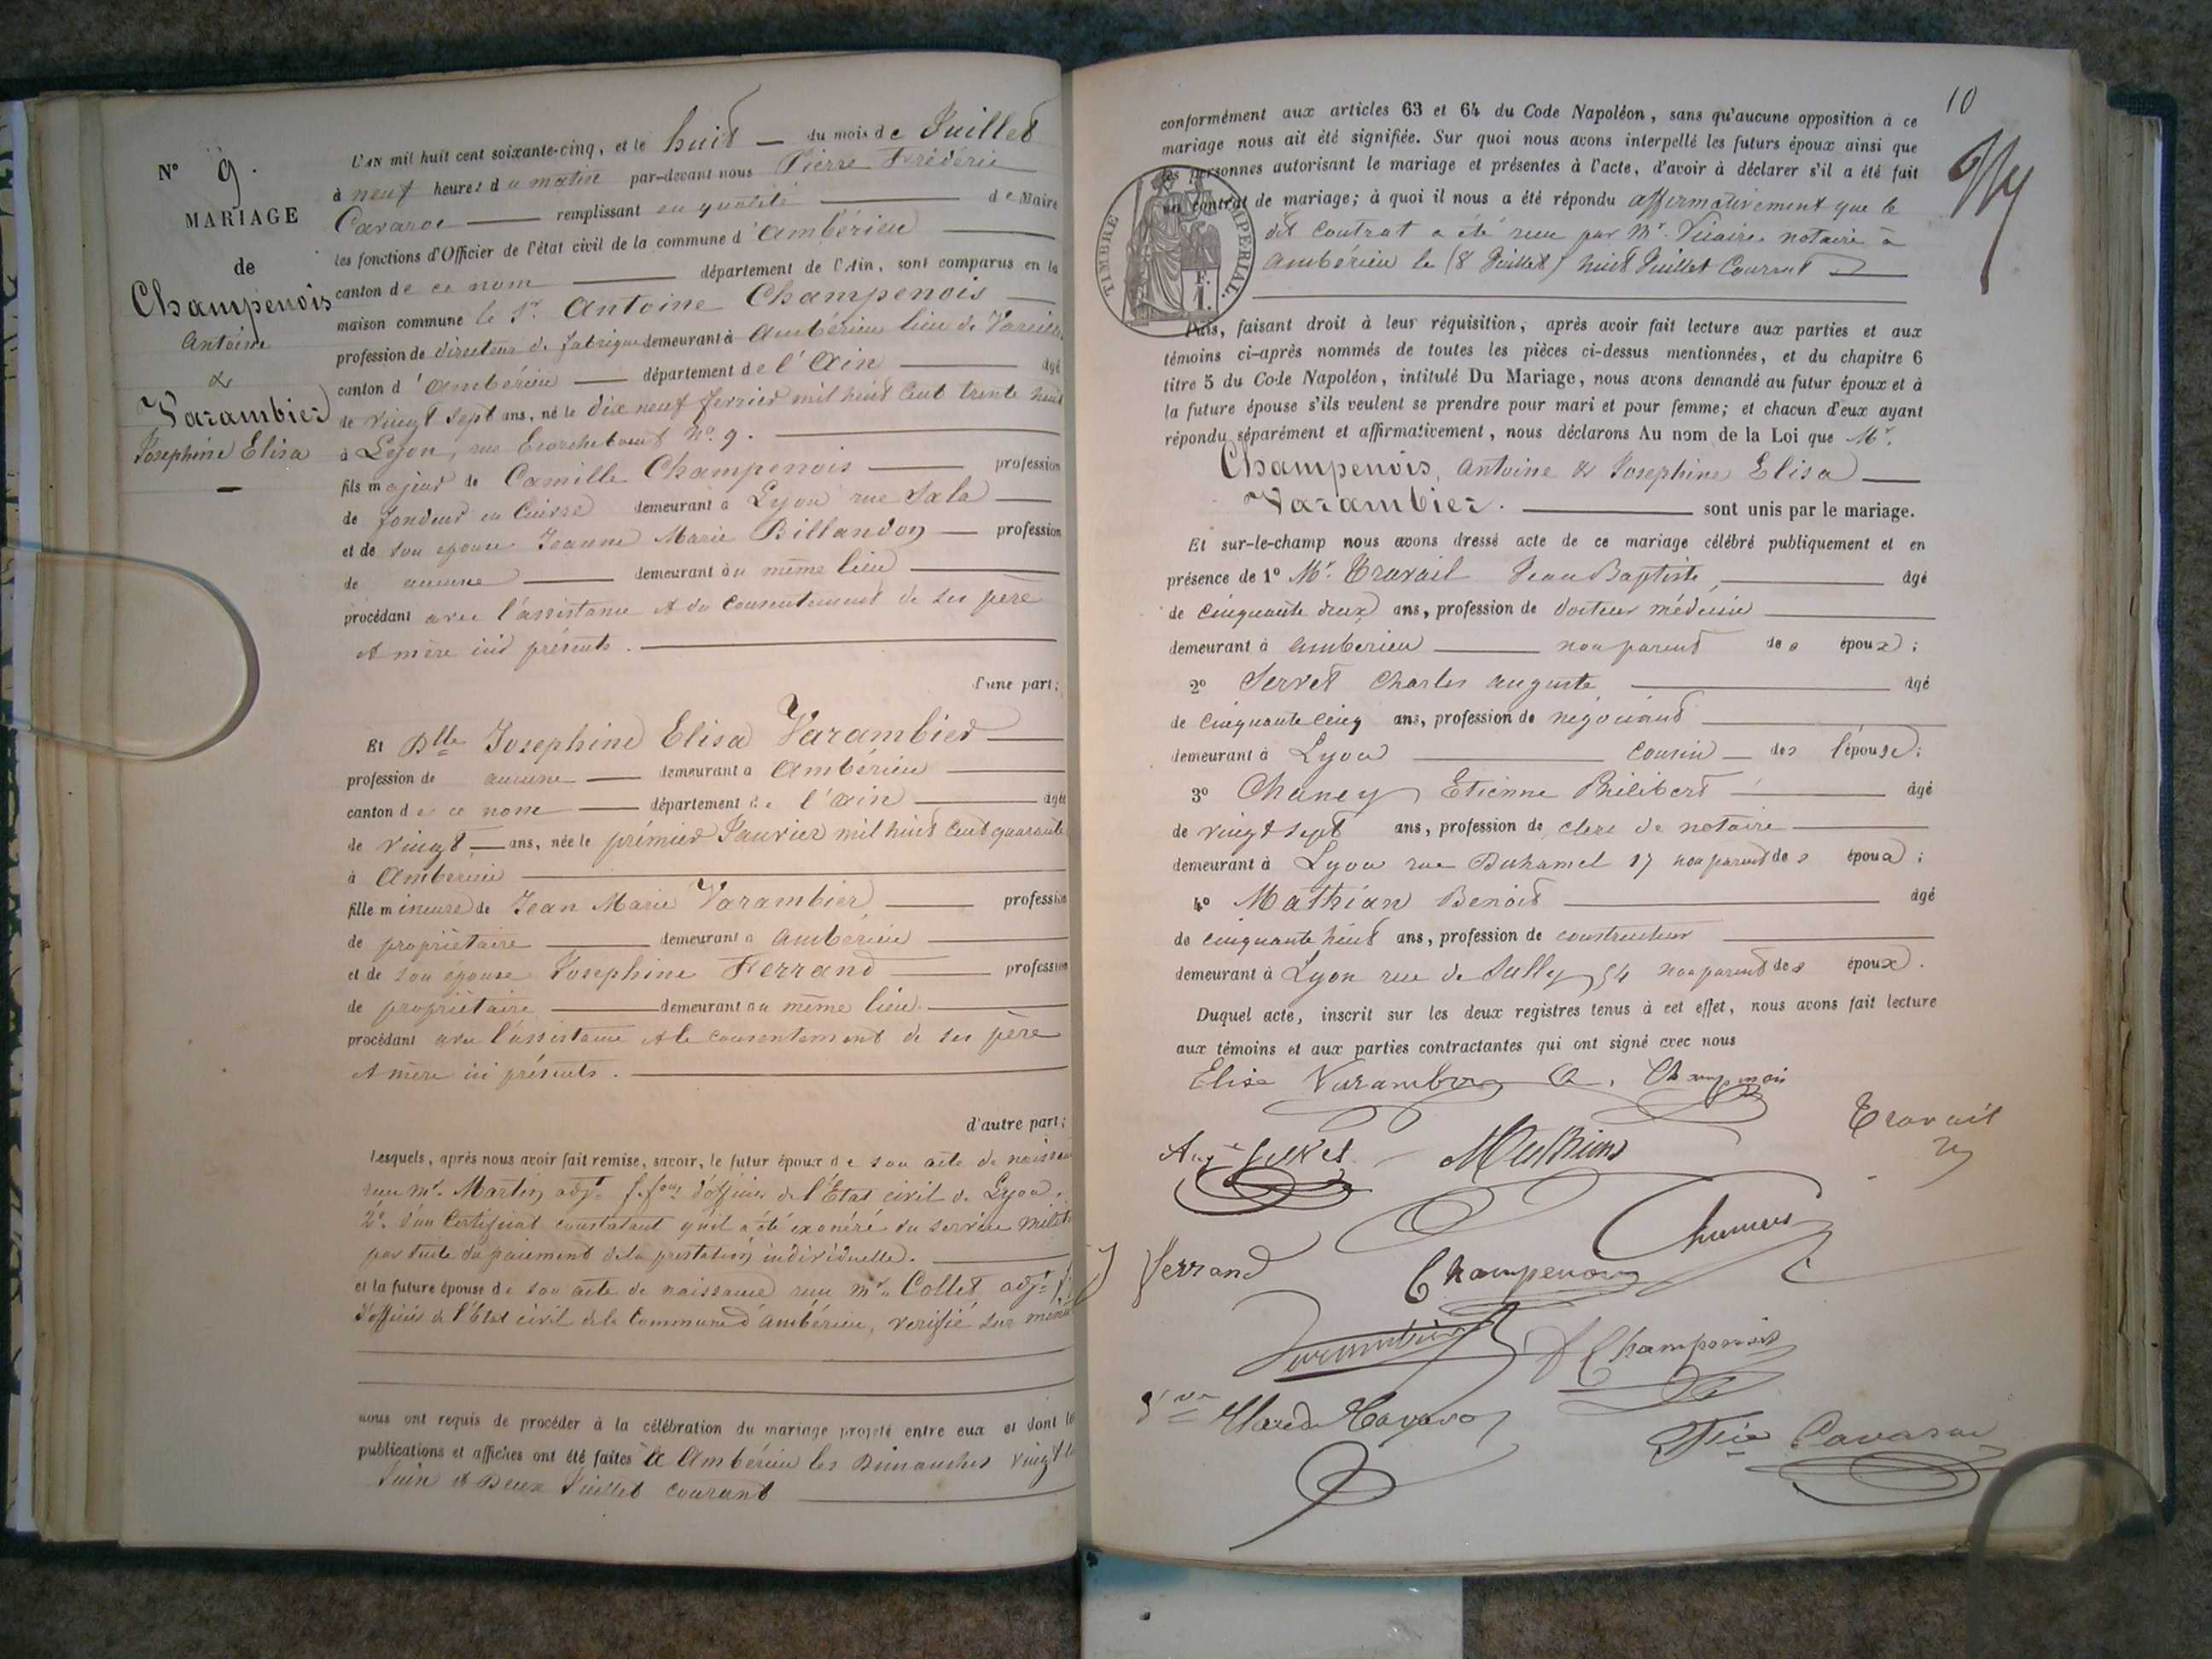 N° 9.
MARIAGE
de
Champenois
Antoine
&
Varambier
Josephine Elisa
L'AN mil huit cent soixante-cinq, et le huit du mois de Juillet
à neuf heures du matin par-devant nous Pierre Frédéric
Cavaroc remplissant en qualité de Maire
les fonctions d'Officier de l'état civil de la commune d'Ambérieu
canton de ce nom département de l'Ain, sont comparus en la
maison commune le Sr. Antoine Champenois
profession de directeur de fabrique demeurant à Ambérieu lieu de Vareilles
canton d'Ambérieu département de l'Ain âgé
de vingt sept ans, né le dix neuf fevrier mil huit cent trente huit
à Lyon, rue Ecorcheboeuf N°. 9.
fils majeur de Camille Champenois profession
de fondeur en cuivre demeurant à Lyon rue Sala
et de son épouse Jeanne Marie Billandon profession
de aucune demeurant au même lieu
procédant avec l'assistance et du consentement de ses père
et mère ici présents.
d'une part;
Et Dlle Josephine Elisa Varambier
profession de aucune demeurant à Ambérieu
canton de ce nom département de l'Ain âgée
de vingt ans, née le prémier Janvier mil huit cent quarante
à Ambérieu
fille mineure de Jean Marie Varambier profession
de propriétaire demeurant à Ambérieu
et de son épouse Josephine Ferrand profession
de propriétaire demeurant au même lieu
procédant avec l'assistance et le consentement de ses père
et mère ici présents.
d'autre part;
Lesquels, après nous avoir fait remise, savoir, le futur époux de son acte de naissance
reçu mr. Martin adjt. f. fons d'officier de l'Etat civil de Lyon.
2°. d'un Certificat constatant qu'il a été exonéré du service milit
par suite du paiement de la prestation individuelle.
et la future épouse de son acte de naissance reçu mr. Collet adjt.
d'officier de l'Etat civil de la Commune d'Ambérieu, verifié sur minute
nous ont requis de procéder à la célébration du mariage projeté entre eux et dont les
publications et affiches ont été faites à Ambérieu les Dimanches vingt
Juin et Deux Juillet courant
10
conformément aux articles 63 et 64 du Code Napoléon, sans qu'aucune opposition à ce
mariage nous ait été signifiée. Sur quoi nous avons interpellé les futurs époux ainsi que
les personnes autorisant le mariage et présentes à l'acte, d'avoir à déclarer s'il a été fait
un contrat de mariage; à quoi il nous a été répondu affirmativement que le
dit contrat a été reçu par Mr. Vicaire notaire à
Ambérieu le (8 Juillet) huit Juillet Courant
TIMBRE IMPERIAL.
F.
1.
Puis, faisant droit à leur réquisition, après avoir fait lecture aux parties et aux
témoins ci-après nommés de toutes les pièces ci-dessus mentionnées, et du chapitre 6
titre 5 du Code Napoléon, intitulé Du Mariage, nous avons demandé au futur époux et à
la future épouse s'ils veulent se prendre pour mari et pour femme; et chacun d'eux ayant
répondu séparément et affirmativement, nous déclarons Au nom de la Loi que Mr.
Champenois, Antoine & Josephine Elisa
Varambier. sont unis par le mariage.
Et sur-le-champ nous avons dressé acte de ce mariage célébré publiquement et en
présence de 1° Mr. Travail Jean Baptiste âgé
de cinquante deux ans, profession de docteur médecin
demeurant à Ambérieu non parent des époux;
2° Servet Charles Auguste âgé
de cinquante cinq ans, profession de négociant
demeurant à Lyon cousin des l'épouse;
3° Chaney Etienne Philibert âgé
de vingt sept ans, profession de clerc de notaire
demeurant à Lyon rue Duhamel 17 non parent des époux;
4° Mathian Benoit âgé
de cinquante huit ans, profession de constructeur
demeurant à Lyon rue de Sully 54 non parent des époux.
Duquel acte, inscrit sur les deux registres tenus à cet effet, nous avons fait lecture
aux témoins et aux parties contractantes qui ont signé avec nous
Elisa Varambier A. Champenois
Travail
Aug. Servet Mathian
Chaney
Ferrand Champenois
Varambier Champenois
Cavaroc